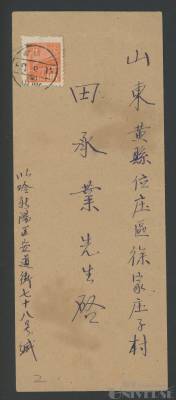 山東黃縣位庄區徐家庄子村
田承業先生啓
哈 陽區安道街七十八号 城
2
UNIVERSE